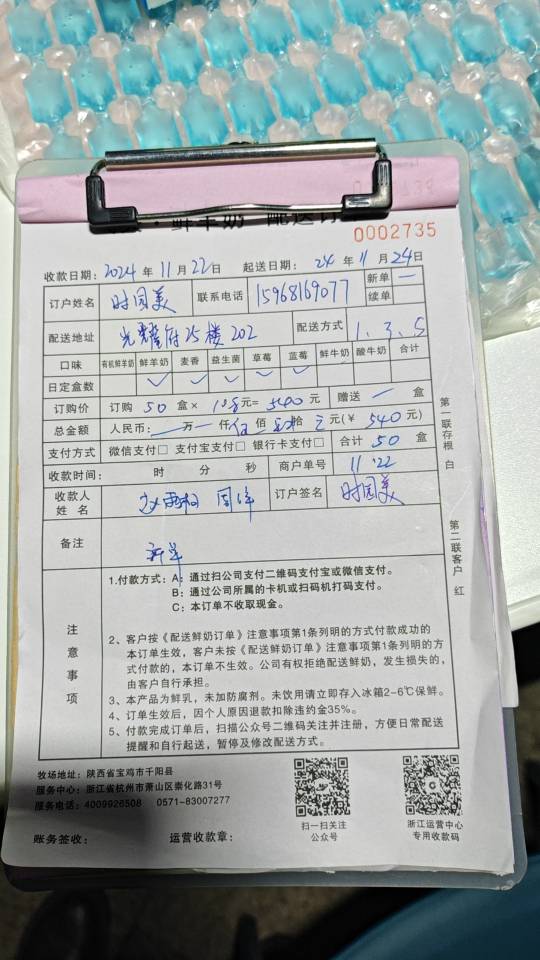 鲜羊奶 配送订
0002735
收款日期：2024 年 11 月 22 日 起送日期：24 年 11 月 24 日
订户姓名 时园美 联系电话 15968169077 新单 一
续单
配送地址 光耀府25楼202 配送方式 1.3.5
口味 有机鲜羊奶 鲜羊奶 麦香 益生菌 草莓 蓝莓 鲜牛奶 酸牛奶 合计
日定盒数 ✓ ✓ ✓ ✓ ✓
订购价 订购 50 盒× 元= 5400 元 赠送 一 盒
总金额 人民币： 万 仟 伍 佰 拾 元(￥ 540 元)
支付方式 微信支付□ 支付宝支付□ 银行卡支付□ 合计 50 盒
收款时间： 时 分 秒 商户单号 11.22
收款人姓名 订户签名 时园美
备注
新单
注意事项
1.付款方式：A：通过扫公司支付二维码支付宝或微信支付。
B：通过公司所属的卡机或扫码机打码支付。
C：本订单不收取现金。
2、客户按《配送鲜奶订单》注意事项第1条列明的方式付款成功的
本订单生效，客户未按《配送鲜奶订单》注意事项第1条列明的方
式付款的，本订单不生效。公司有权拒绝配送鲜奶，发生损失的，
由客户自行承担。
3、本产品为鲜乳，未加防腐剂。未饮用请立即存入冰箱2-6℃保鲜。
4、订单生效后，因个人原因退款扣除违约金35%。
5、付款完成订单后，扫描公众号二维码关注并注册，方便日常配送
提醒和自行起送，暂停及修改配送方式。
第一联存根 白
第二联客户 红
牧场地址：陕西省宝鸡市千阳县
服务中心：浙江省杭州市萧山区崇化路31号
服务电话：4009926508 0571-83007277
扫一扫关注
公众号
浙江运营中心
专用收款码
账务签收： 运营收款章：